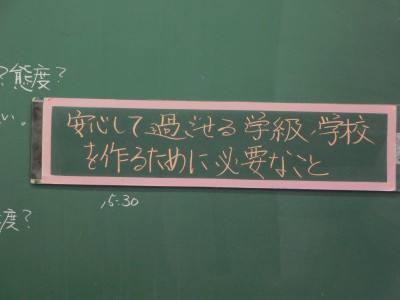 ?態度?
い。
安心して過ごせる学級、学校
を作るために必要なこと
15:30
度?